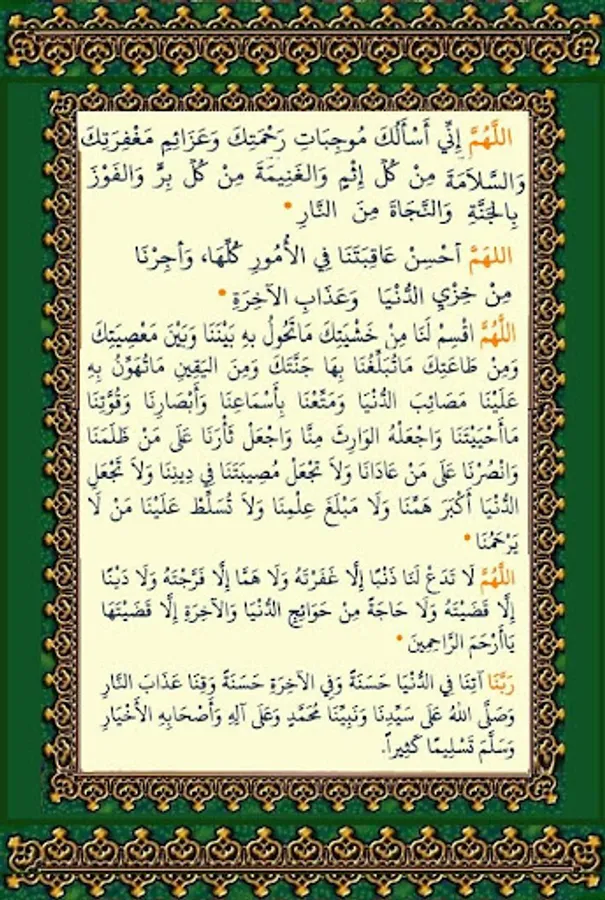 اللَّهُمَّ إِنِّي أَسْأَلُكَ مُوجِبَاتِ رَحْمَتِكَ وَعَزَائِمِ مَغْفِرَتِكَ
وَالسَّلاَمَةَ مِنْ كُلِّ إِثْمٍ وَالغَنِيمَةَ مِنْ كُلِّ بِرٍّ وَالفَوْزَ
بِالجَنَّةِ وَالنَّجَاةَ مِنَ النَّارِ •
اللهَمَّ أحْسِنْ عَاقِبَتَنَا فِي الأُمُورِ كُلِّهَا، وَأجِرْنَا
مِنْ خِزْيِ الدُّنْيَا وَعَذَابِ الآخِرَةِ •
اللَّهُمَّ اقْسِمْ لَنَا مِنْ خَشْيَتِكَ مَاتَحُولُ بِهِ بَيْنَنَا وَبَيْنَ مَعْصِيَتِكَ
وَمِنْ طَاعَتِكَ مَاتُبَلِّغُنَا بِهَا جَنَّتَكَ وَمِنَ اليَقِينِ مَاتُهَوِّنُ بِهِ
عَلَيْنَا مَصَائِبَ الدُّنْيَا وَمَتِّعْنَا بِأَسْمَاعِنَا وَأَبْصَارِنَا وَقُوَّتِنَا
مَاأَحْيَيْتَنَا وَاجْعَلْهُ الوَارِثَ مِنَّا وَاجْعَلْ ثَأْرَنَا عَلَى مَنْ ظَلَمَنَا
وَانْصُرْنَا عَلَى مَنْ عَادَانَا وَلاَ تجْعَلْ مُصِيبَتَنَا فِي دِينِنَا وَلاَ تَجْعَلِ
الدُّنْيَا أَكْبَرَ هَمِّنَا وَلَا مَبْلَغَ عِلْمِنَا وَلاَ تُسَلِّطْ عَلَيْنَا مَنْ لَا
يَرْحَمُنَا •
اللَّهُمَّ لَا تَدَعْ لَنَا ذَنْبًا إِلَّا غَفَرْتَهُ وَلَا هَمًّا إِلَّا فَرَّجْتَهُ وَلَا دَيْنًا
إِلَّا قَضَيْتَهُ وَلَا حَاجَةً مِنْ حَوَائِجِ الدُّنْيَا وَالآخِرَةِ إِلَّا قَضَيْتَهَا
يَاأَرْحَمَ الرَّاحِمِينَ •
رَبَّنَا آتِنَا فِي الدُّنْيَا حَسَنَةً وَفِي الآخِرَةِ حَسَنَةً وَقِنَا عَذَابَ النَّارِ
وَصَلَّى اللهُ عَلَى سَيِّدِنَا وَنَبِيِّنَا مُحَمَّدٍ وَعَلَى آلِهِ وَأَصْحَابِهِ الأَخْيَارِ
وَسَلَّمَ تَسْلِيمًا كَثِيراً.